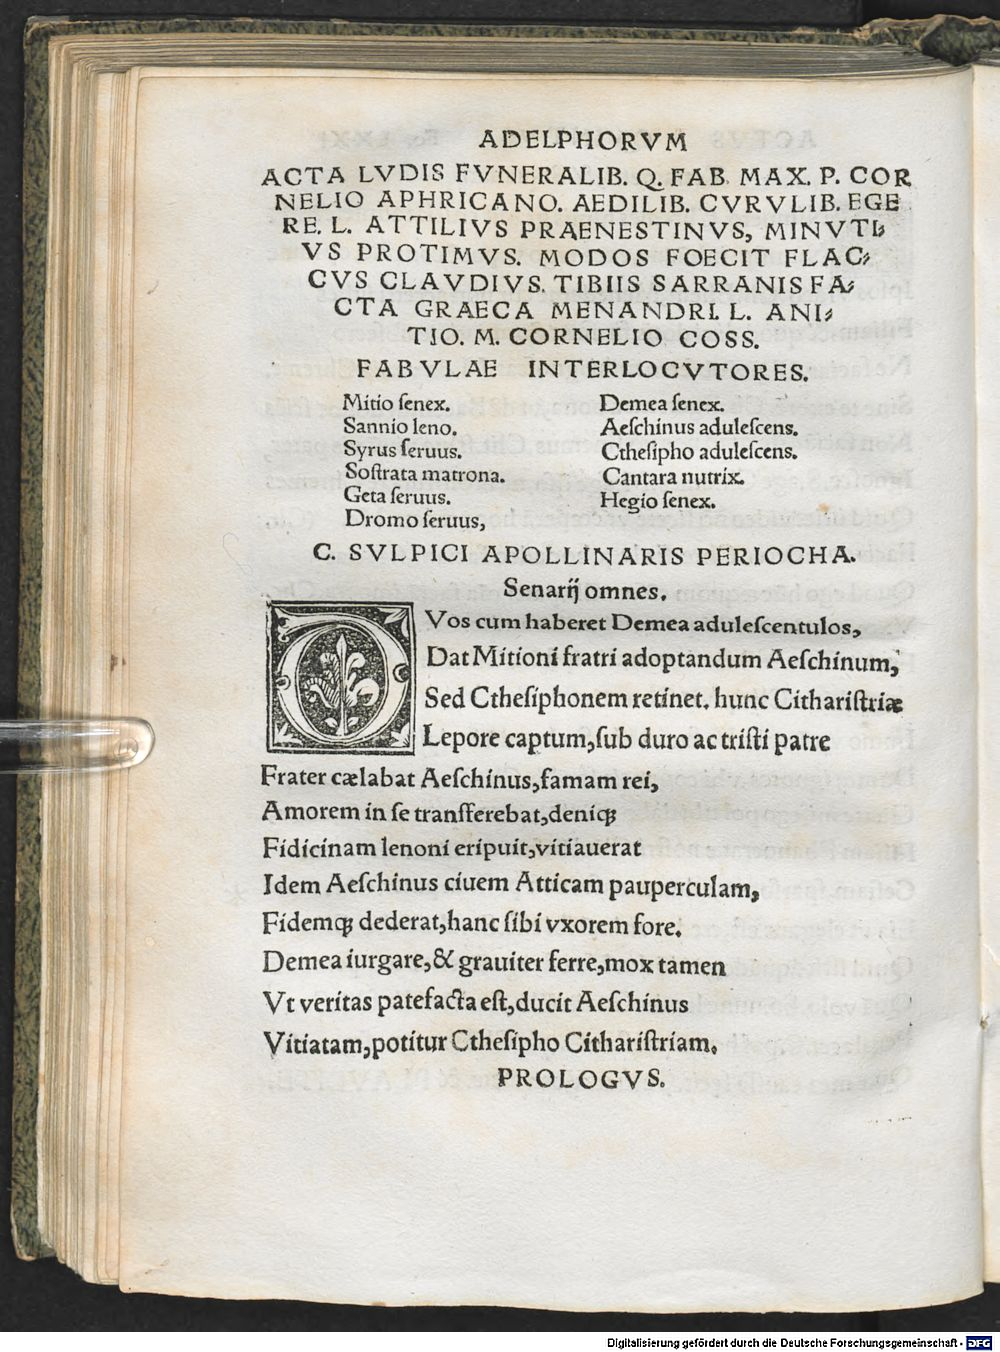 ADELPHORVM
ACTA LVDIS FVNERALIB. Q. FAB. MAX. P. COR
NELIO APHRICANO. AEDILIB. CVRVLIB. EGE
RE. L. ATTILIVS PRAENESTINVS, MINVTI⸗
VS PROTIMVS. MODOS FOECIT FLAC⸗
CVS CLAVDIVS. TIBIIS SARRANIS FA⸗
CTA GRAECA MENANDRI. L. ANI⸗
TIO. M. CORNELIO COSS.
FABVLAE INTERLOCVTORES.
Mitio ſenex. Demea ſenex.
Sannio leno. Aeſchinus aduleſcens.
Syrus ſeruus. Ctheſipho aduleſcens.
Soſtrata matrona. Cantara nutrix.
Geta ſeruus. Hegio ſenex.
Dromo ſeruus,
C. SVLPICI APOLLINARIS PERIOCHA.
Senarij omnes.
DVos cum haberet Demea aduleſcentulos,
Dat Mitioni fratri adoptandum Aeſchinum,
Sed Ctheſiphonem retinet. hunc Cithariſtriæ
Lepore captum,ſub duro ac triſti patre
Frater cælabat Aeſchinus,famam rei,
Amorem in ſe transferebat,deniqꝫ
Fidicinam lenoni eripuit,vitiauerat
Idem Aeſchinus ciuem Atticam pauperculam,
Fidemqꝫ dederat,hanc ſibi vxorem fore.
Demea iurgare,& grauiter ferre,mox tamen
Vt veritas patefacta eſt,ducit Aeſchinus
Vitiatam,potitur Ctheſipho Cithariſtriam.
PROLOGVS.
Digitalisierung gefördert durch die Deutsche Forschungsgemeinschaft - DFG